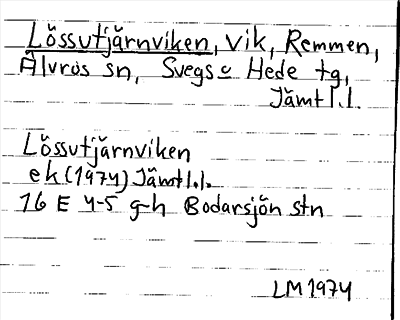 Lössutjärnviken, Vik, Remmen,
Älvros sn, Svegs o Hede tg,
Jämtl.l.
Lössutjärnviken
ek (1974) Jämtl.l.
16 E 4-5 g-h Bodarsjön stn
LM 1974